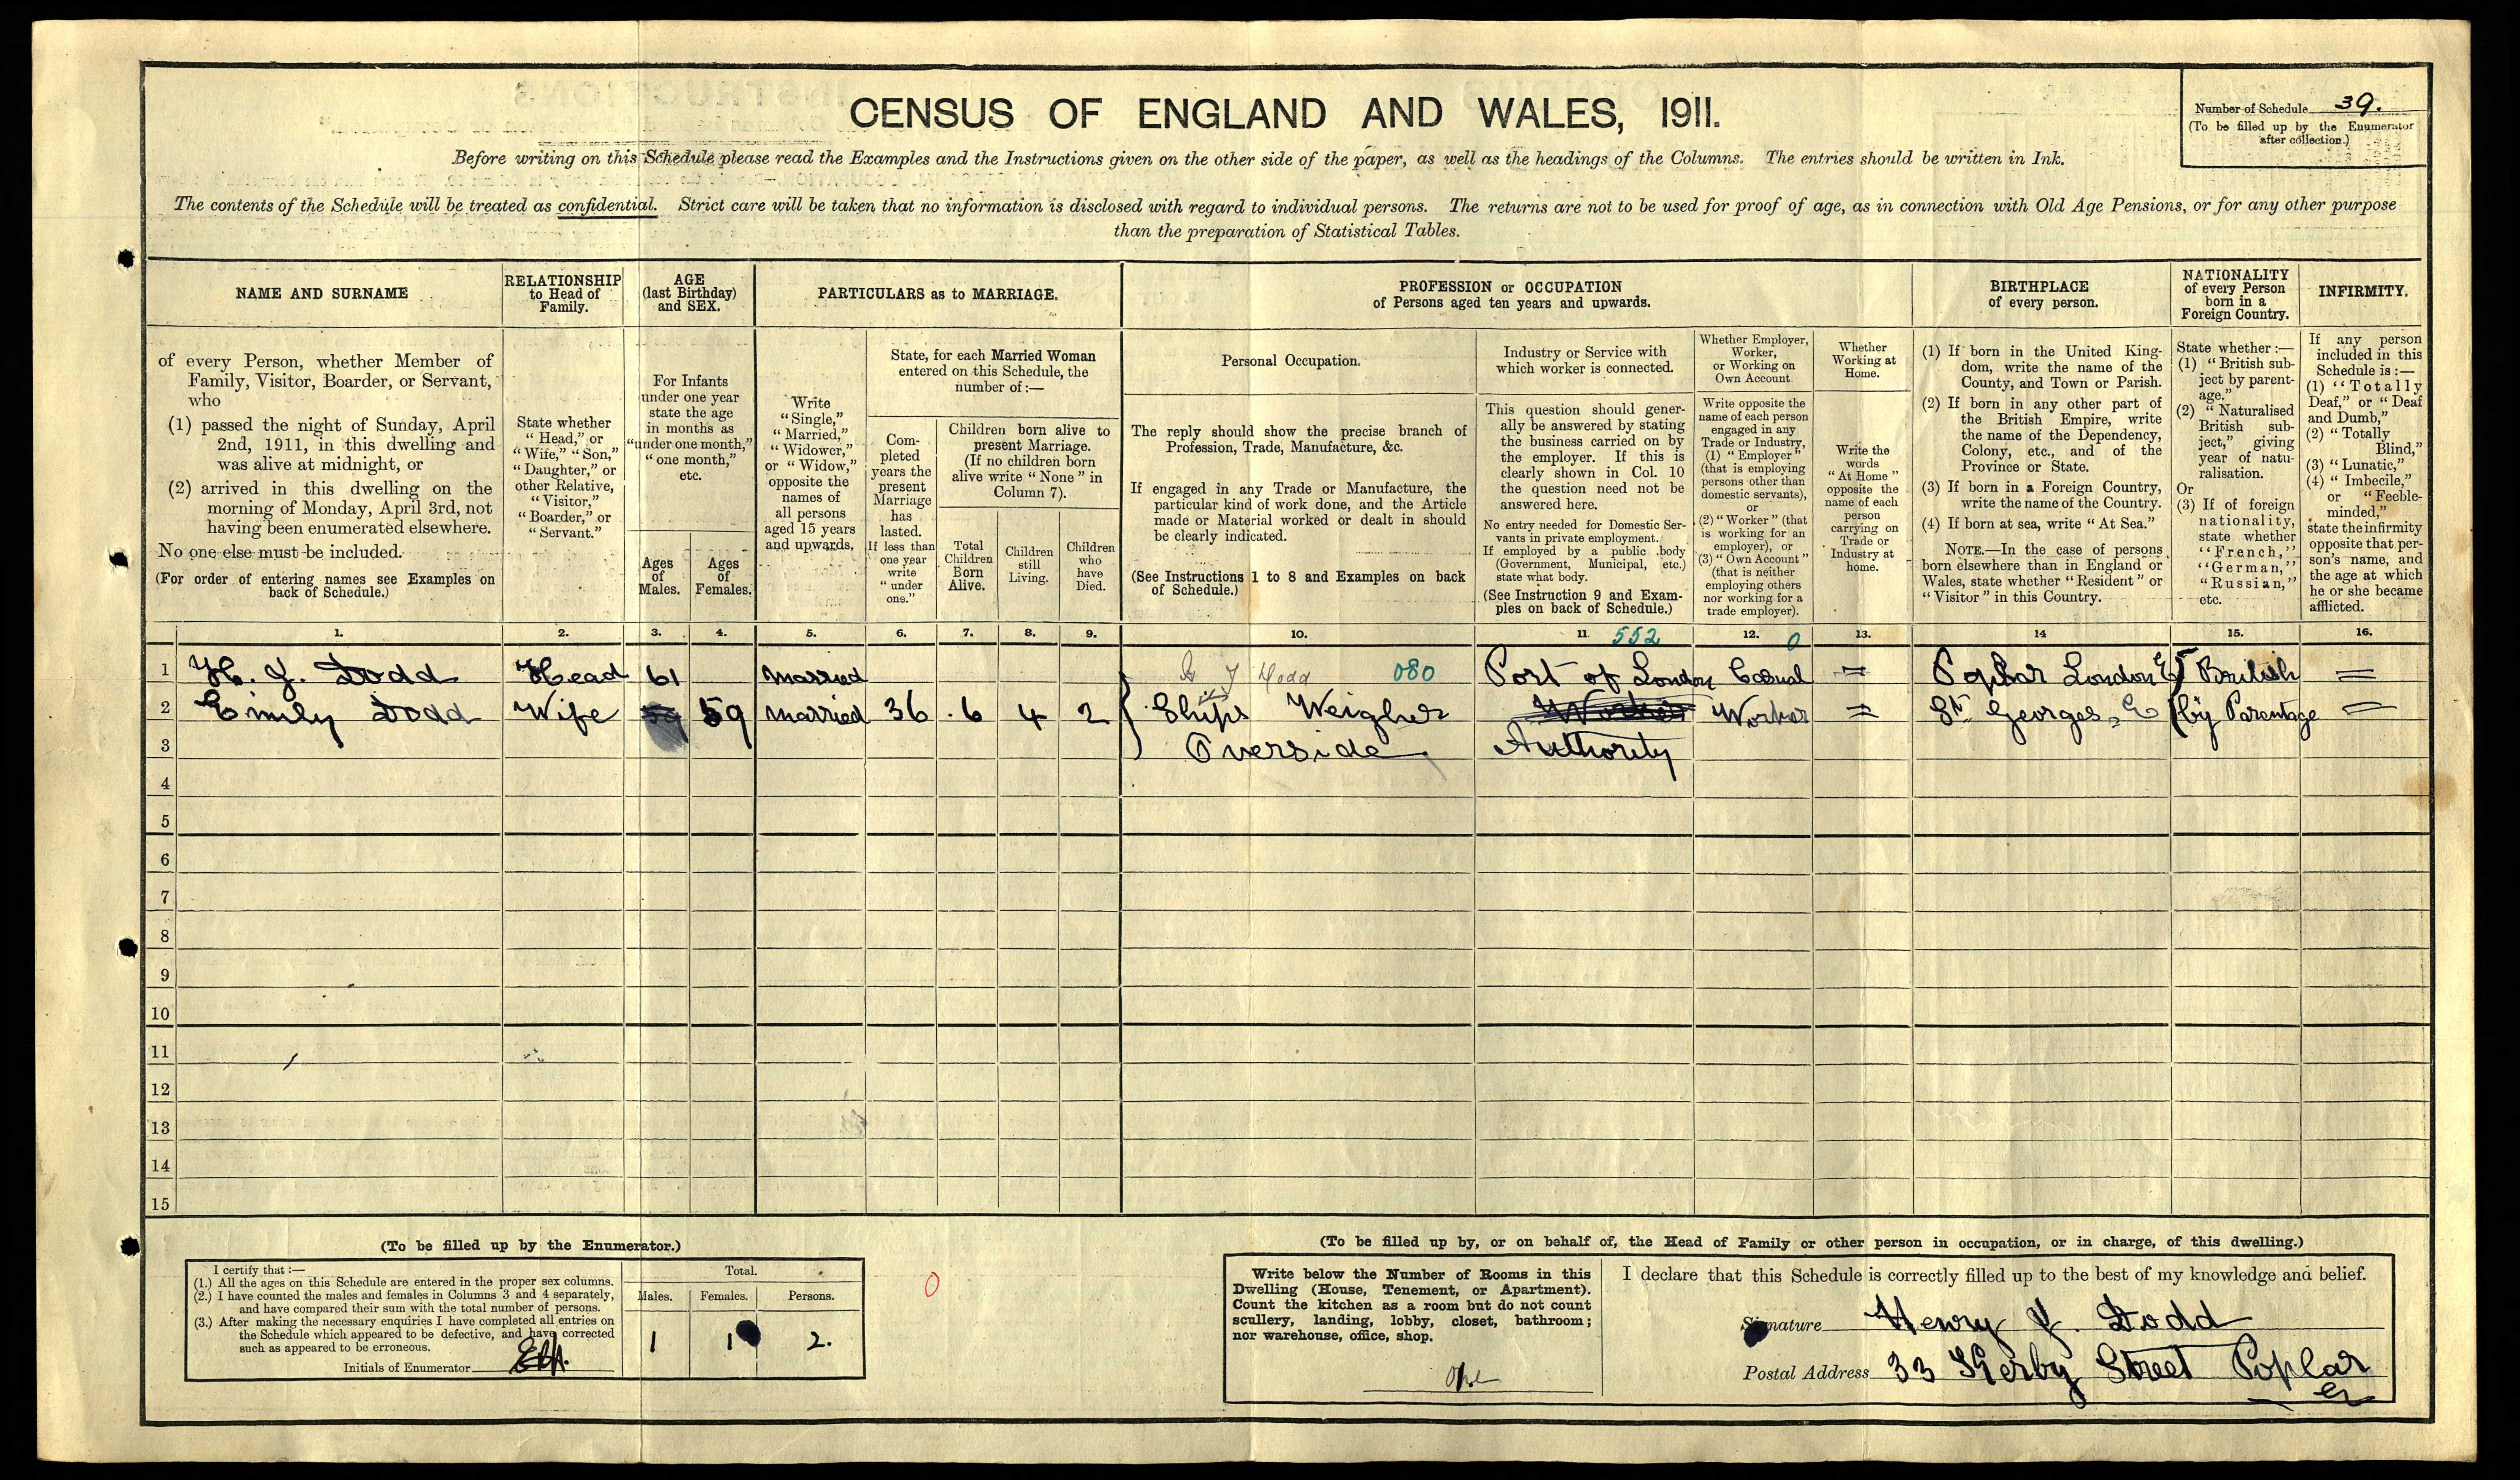 CENSUS OF ENGLAND AND WALES, 1911.
Number of Schedule 39.
(To be filled up by the Enumerator
after collection.)
Before writing on this Schedule please read the Examples and the Instructions given on the other side of the paper, as well as the headings of the Columns. The entries should be written in Ink.
The contents of the Schedule will be treated as confidential. Strict care will be taken that no information is disclosed with regard to individual persons. The returns are not to be used for proof of age, as in connection with Old Age Pensions, or for any other purpose
than the preparation of Statistical Tables.
NAME AND SURNAME
of every Person, whether Member of
Family, Visitor, Boarder, or Servant,
who
(1) passed the night of Sunday, April
2nd, 1911, in this dwelling and
was alive at midnight, or
(2) arrived in this dwelling on the
morning of Monday, April 3rd, not
having been enumerated elsewhere.
No one else must be included.
(For order of entering names see Examples on
back of Schedule.)
RELATIONSHIP
to Head of
Family.
State whether
"Head," or
"Wife," "Son,"
"Daughter," or
other Relative,
"Visitor,"
"Boarder," or
"Servant."
AGE
(last Birthday)
and SEX.
For Infants
under one year
state the age
in months as
"under one month,"
"one month,"
etc.
Ages
of
Males.
Ages
of
Females.
PARTICULARS as to MARRIAGE.
Write
"Single,"
"Married,"
"Widower,"
or "Widow,"
opposite the
names of
all persons
aged 15 years
and upwards.
State, for each Married Woman
entered on this Schedule, the
number of:—
Com-
pleted
years the
present
Marriage
has
lasted.
If less than
one year
write
"under
one."
Children born alive to
present Marriage.
(If no children born
alive write "None" in
Column 7).
Total
Children
Born
Alive.
Children
still
Living.
Children
who
have
Died.
PROFESSION or OCCUPATION
of Persons aged ten years and upwards.
Personal Occupation.
The reply should show the precise branch of
Profession, Trade, Manufacture, &c.
If engaged in any Trade or Manufacture, the
particular kind of work done, and the Article
made or Material worked or dealt in should
be clearly indicated.
(See Instructions 1 to 8 and Examples on back
of Schedule.)
Industry or Service with
which worker is connected.
This question should gener-
ally be answered by stating
the business carried on by
the employer. If this is
clearly shown in Col. 10
the question need not be
answered here.
No entry needed for Domestic Ser-
vants in private employment.
If employed by a public body
(Government, Municipal, etc.)
state what body.
(See Instruction 9 and Exam-
ples on back of Schedule.)
Whether Employer,
Worker,
or Working on
Own Account.
Write opposite the
name of each person
engaged in any
Trade or Industry,
(1) "Employer"
(that is employing
persons other than
domestic servants),
or
(2) "Worker" (that
is working for an
employer), or
(3) "Own Account"
(that is neither
employing others
nor working for a
trade employer).
Whether
Working at
Home.
Write the
words
"At Home"
opposite the
name of each
person
carrying on
Trade or
Industry at
home.
BIRTHPLACE
of every person.
(1) If born in the United King-
dom, write the name of the
County, and Town or Parish.
(2) If born in any other part of
the British Empire, write
the name of the Dependency,
Colony, etc., and of the
Province or State.
(3) If born in a Foreign Country,
write the name of the Country.
(4) If born at sea, write "At Sea."
NOTE.—In the case of persons
born elsewhere than in England or
Wales, state whether "Resident" or
"Visitor" in this Country.
NATIONALITY
of every Person
born in a
Foreign Country.
State whether:—
(1) "British sub-
ject by parent-
age,"
(2) "Naturalised
British sub-
ject," giving
year of natu-
ralisation.
Or
(3) If of foreign
nationality,
state whether
"French,"
"German,"
"Russian,"
etc.
INFIRMITY.
If any person
included in this
Schedule is:—
(1) "Totally
Deaf," or "Deaf
and Dumb,"
(2) "Totally
Blind,"
(3) "Lunatic,"
(4) "Imbecile,"
or "Feeble-
minded,"
state the infirmity
opposite that per-
son's name, and
the age at which
he or she became
afflicted.
1. 2. 3. 4. 5. 6. 7. 8. 9. 10. 11. 552 12. 0 13. 14 15. 16.
1 H. J. Dodd Head 61 Married H J Dodd 080 Port of London Casual = Poplar London E British =
2 Emily Dodd Wife 59 59 Married 36 6 4 2 Ships Weigher Worker Worker = St Georges, E by Parentage =
3 Overside Authority
4
5
6
7
8
9
10
11
12
13
14
15
(To be filled up by the Enumerator.)
I certify that:—
(1.) All the ages on this Schedule are entered in the proper sex columns.
(2.) I have counted the males and females in Columns 3 and 4 separately,
and have compared their sum with the total number of persons.
(3.) After making the necessary enquiries I have completed all entries on
the Schedule which appeared to be defective, and have corrected
such as appeared to be erroneous.
Initials of Enumerator
Total.
Males. Females. Persons.
1 1 2.
0
(To be filled up by, or on behalf of, the Head of Family or other person in occupation, or in charge, of this dwelling.)
Write below the Number of Rooms in this
Dwelling (House, Tenement, or Apartment).
Count the kitchen as a room but do not count
scullery, landing, lobby, closet, bathroom;
nor warehouse, office, shop.
One
I declare that this Schedule is correctly filled up to the best of my knowledge and belief.
Signature Henry J. Dodd
Postal Address 33 Kerby Street Poplar
E